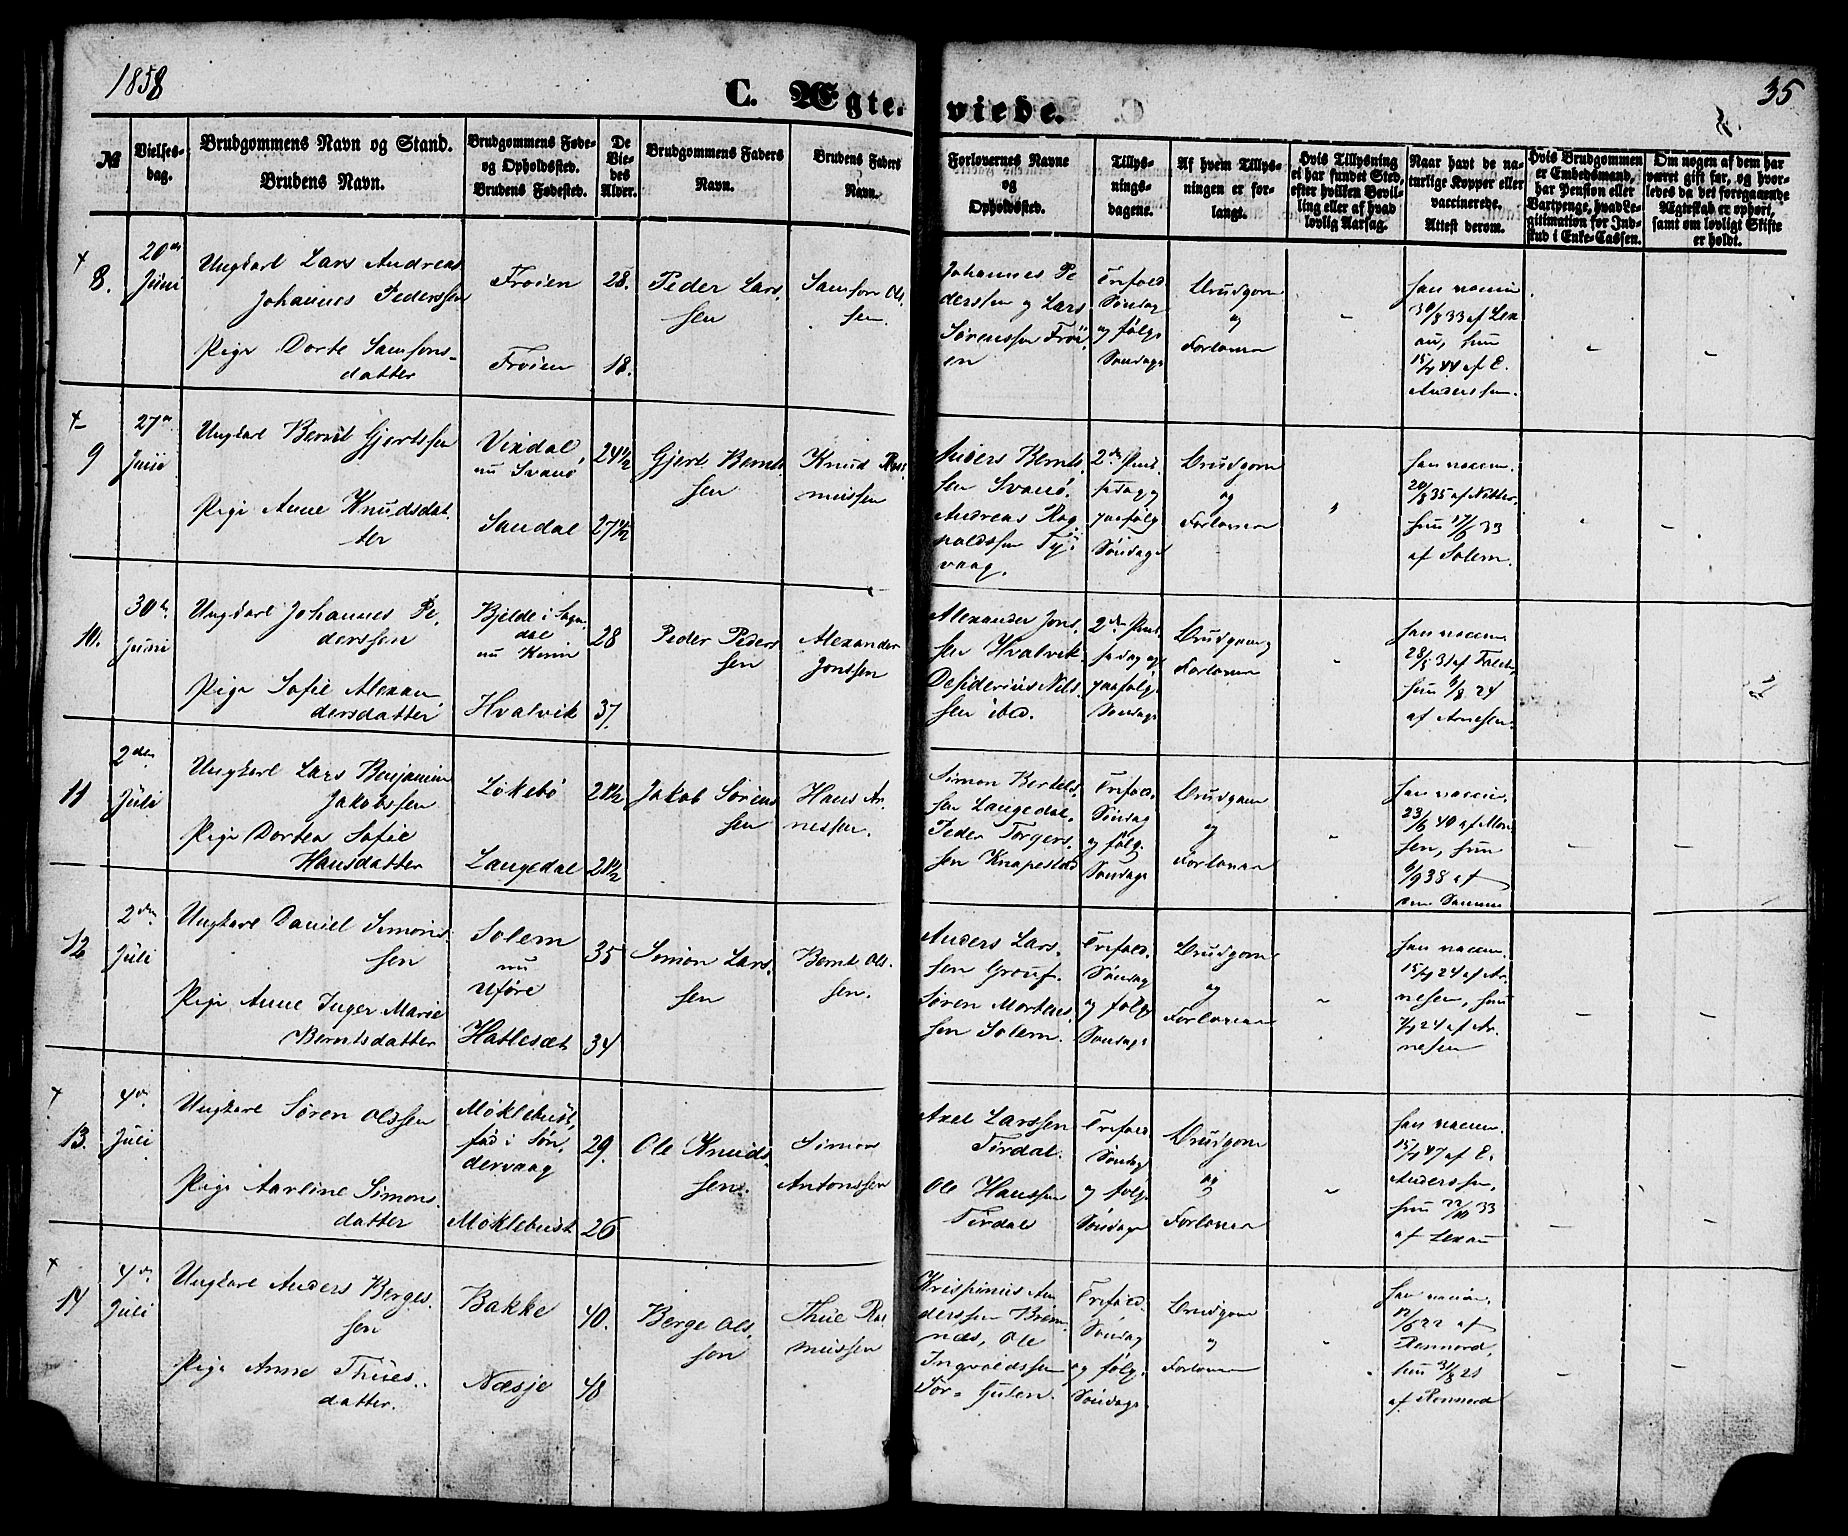 1858
C. Ægte-
viede.
35
№
Vielses-
dag.
Brudgommens Navn og Stand.
Brudens Navn.
Brudgommens Føde-
og Opholdssted.
Brudens Fødested.
De
Vie-
des
Alder.
Brudgommens Faders
Navn.
Brudens Faders
Navn.
Forlovernes Navne
og
Opholdssted.
Tillys-
nings-
dagene.
Af hvem Tillys-
ningen er for-
langt.
Hvis Tillysning
ei har fundet Sted,
efter hvilken Bevil-
ling eller af hvad
lovlig Aarsag.
Naar havt de na-
turlige Kopper eller
vaccinerede.
Attest derom.
Hvis Brudgommen
er Embedsmand,
har Pension eller
Vartpenge, hvad Le-
gitimation for Ind-
skud i Enke-Cassen.
Om nogen af dem har
været gift før, og hvor-
ledes da det foregaaende
Ægteskab er ophørt,
samt om lovligt Skifte
er holdt.
8.
20de
Juni
Ungkarl Lars Andreas
Johannes Pederssen
Pige Dorte Samsons-
datter
Frøien
Frøien
28.
18.
Peder Lars-
sen
Samson Ols-
sen.
Johannes Pe
derssen og Lars
Sørenssen Frøi-
en
Trefold.
Søndag
og følg.
Søndage
Brudgom
og
Forlover
han vaccin
30/8 33 af Lex
au, hun
15/7 44 af E.
Anderssen.
9
27de
Juni
Ungkarl Bernt Gjertssen
Pige Anne Knudsdat-
ter
Vixdal,
nu Svanø
Sandal
24 1/2
27 1/2
Gjert Bernt-
sen
Knud Ras-
mussen
Anders Bernt-
sen Svanø.
Andreas Rag-
valdssen Ty-
vaag.
2den Pint-
sedag og
paafølg.
Søndage
Brudgom
og
Forlover
han vaccin.
20/8 35 af Nitter,
hun 17/6 33
af Solem.
10.
30te
Juni
Ungkarl Johannes Pe-
derssen
Pige Sofie Alexan
dersdatter
Kjelde i Sogn-
dal
nu Kinn
Hvalvik
28
37.
Peder Peders
sen
Alexander
Jonssen
Alexander Jons-
sen Hvalvik
Desiderius Nils-
sen ibd.
2den Pint-
sedag og
paafølg.
Søndage
Brudgom og
Forlover
han vaccin
28/5 31 af Falch,
hun 9/8 24
af Arnesen.
11
2den
Juli
Ungkarl Lars Benjamin
Jakobssen
Pige Dortea Sofie
Hansdatter
Løkebø
Langedal
21 1/2
21 1/2
Jakob Sørens
sen
Hans Ar-
nessen.
Simon Bertels-
sen Langedal.
Peder Torgers-
sen Knapestad
Trefold.
Søndag
og følg.
Søndage
Brudgom
og
Forlover
han vaccin.
23/6 40 af Mon
sen, hun
9/9 38 af
den Samme
12
2den
Juli
Ungkarl Daniel Simons-
sen
Pige Anne Inger Marie
Berntsdatter
Solem
nu
Uføre
Hatlesæt
35
34
Simon Lars-
sen
Bernt Ols-
sen.
Anders Lars-
sen Grouf.
Søren Mortens
sen Solem.
Trefold.
Søndag
og følg.
Søndage
Brudgom
og
Forlover
han vaccin.
15/7 24 af Ar-
nesen, hun
7/7 24 af Ar-
nesen
13.
4de
Juli
Ungkarl Søren Olssen
Pige Aarline Simons
datter
Møklebust,
fød i Søn-
dervaag
Møklebust
29.
26
Ole Knuds-
sen.
Simon
Antonssen
Axel Larssen
Tørdal.
Ole Hanssen
Tørdal
Trefold.
Søndag
og følg.
Søndage
Brudgom
og
Forlover
han vaccin.
15/7 47 af E.
Anderssen,
hun 22/10 33
af Lexau
14
4de
Juli
Ungkarl Anders Berges-
sen
Pige Anne Thues-
datter.
Bakke
Næsje
40.
48
Berge Ols-
sen
Thue Ras
mussen
Krispinus An
derssen Brem-
næs, Ole
Ingvaldssen
Sør-Gulen.
Trefold.
Søndag
og følg.
Søndage
Brudgom
og
Forlover
han vaccin.
12/6 22 af
Rennord,
hun 31/8 21
af Rennord